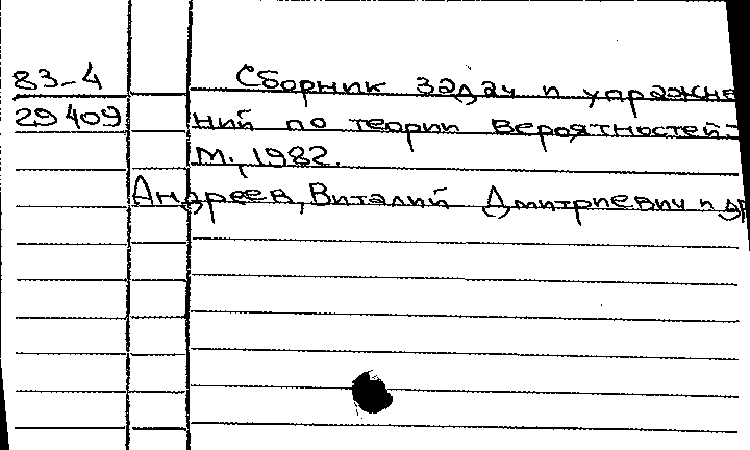 83-4 Сборник задач и упражне
29409 ний по теории вероятностей.-
М., 1982.
Андреев, Виталий Дмитриевич и др